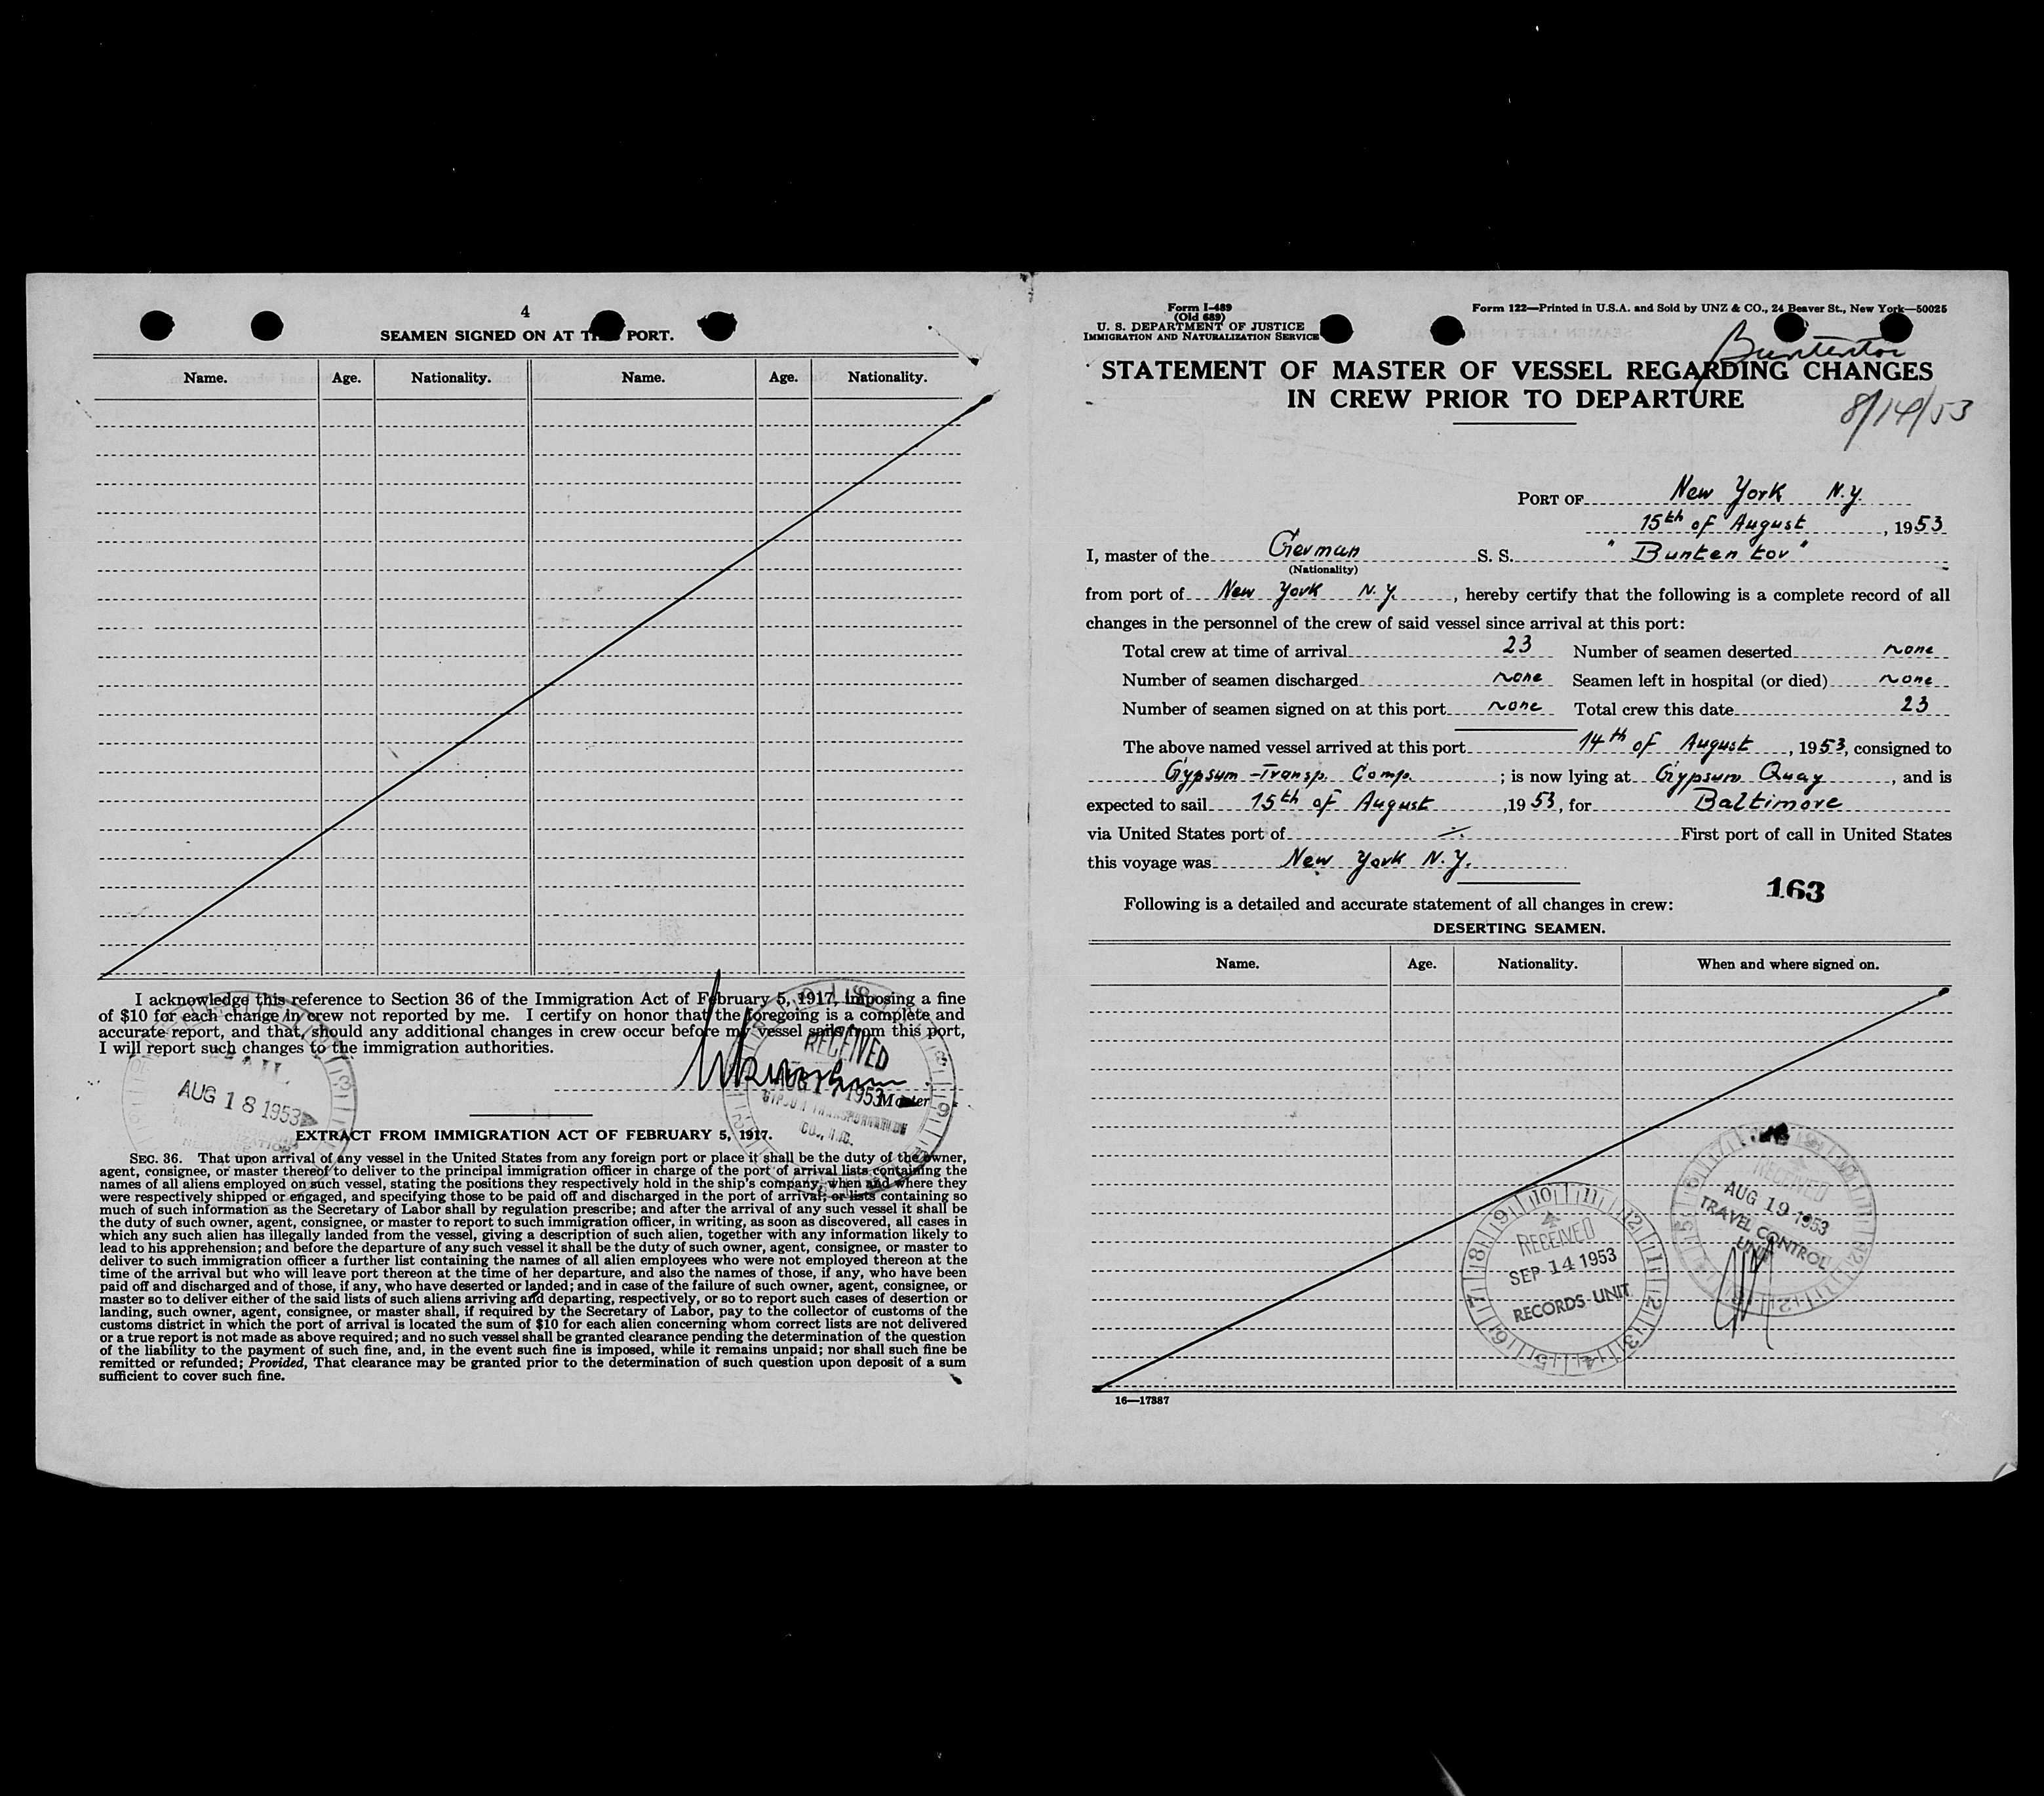 4
SEAMEN SIGNED ON AT PORT.
Name. Age. Nationality. Name. Age. Nationality.
I acknowledge this reference to Section 36 of the Immigration Act of February 5, 1917, imposing a fine
of $10 for each change in crew not reported by me. I certify on honor that the foregoing is a complete and
accurate report, and that, should any additional changes in crew occur before my vessel sails from this port,
I will report such changes to the immigration authorities.
AUG 18 1953
RECEIVED
1953
CO., INC.
Master.
EXTRACT FROM IMMIGRATION ACT OF FEBRUARY 5, 1917.
SEC. 36. That upon arrival of any vessel in the United States from any foreign port or place it shall be the duty of the owner,
agent, consignee, or master thereof to deliver to the principal immigration officer in charge of the port of arrival lists containing the
names of all aliens employed on such vessel, stating the positions they respectively hold in the ship's company, when and where they
were respectively shipped or engaged, and specifying those to be paid off and discharged in the port of arrival; or lists containing so
much of such information as the Secretary of Labor shall by regulation prescribe; and after the arrival of any such vessel it shall be
the duty of such owner, agent, consignee, or master to report to such immigration officer, in writing, as soon as discovered, all cases in
which any such alien has illegally landed from the vessel, giving a description of such alien, together with any information likely to
lead to his apprehension; and before the departure of any such vessel it shall be the duty of such owner, agent, consignee, or master to
deliver to such immigration officer a further list containing the names of all alien employees who were not employed thereon at the
time of the arrival but who will leave port thereon at the time of her departure, and also the names of those, if any, who have been
paid off and discharged and of those, if any, who have deserted or landed; and in case of the failure of such owner, agent, consignee, or
master so to deliver either of the said lists of such aliens arriving and departing, respectively, or so to report such cases of desertion or
landing, such owner, agent, consignee, or master shall, if required by the Secretary of Labor, pay to the collector of customs of the
customs district in which the port of arrival is located the sum of $10 for each alien concerning whom correct lists are not delivered
or a true report is not made as above required; and no such vessel shall be granted clearance pending the determination of the question
of the liability to the payment of such fine, and, in the event such fine is imposed, while it remains unpaid; nor shall such fine be
remitted or refunded; Provided, That clearance may be granted prior to the determination of such question upon deposit of a sum
sufficient to cover such fine.
Form I-489
(Old 689)
U. S. DEPARTMENT OF JUSTICE
IMMIGRATION AND NATURALIZATION SERVICE
Form 122—Printed in U.S.A. and Sold by UNZ & CO., 24 Beaver St., New York—50025
Buntentor
STATEMENT OF MASTER OF VESSEL REGARDING CHANGES
IN CREW PRIOR TO DEPARTURE
8/14/53
PORT OF New York N.Y.
15th of August, 1953
I, master of the German S. S. "Buntentor"
(Nationality)
from port of New York N.Y., hereby certify that the following is a complete record of all
changes in the personnel of the crew of said vessel since arrival at this port:
Total crew at time of arrival 23 Number of seamen deserted none
Number of seamen discharged none Seamen left in hospital (or died) none
Number of seamen signed on at this port none Total crew this date 23
The above named vessel arrived at this port 14th of August, 1953, consigned to
Gypsum-Transp. Comp.; is now lying at Gypsum Quay, and is
expected to sail 15th of August, 1953, for Baltimore
via United States port of ./. First port of call in United States
this voyage was New York N.Y.
163
Following is a detailed and accurate statement of all changes in crew:
DESERTING SEAMEN.
Name. Age. Nationality. When and where signed on.
RECEIVED
AUG 19 1953
TRAVEL CONTROL
UNIT
RECEIVED
SEP 14 1953
RECORDS UNIT
16—17887